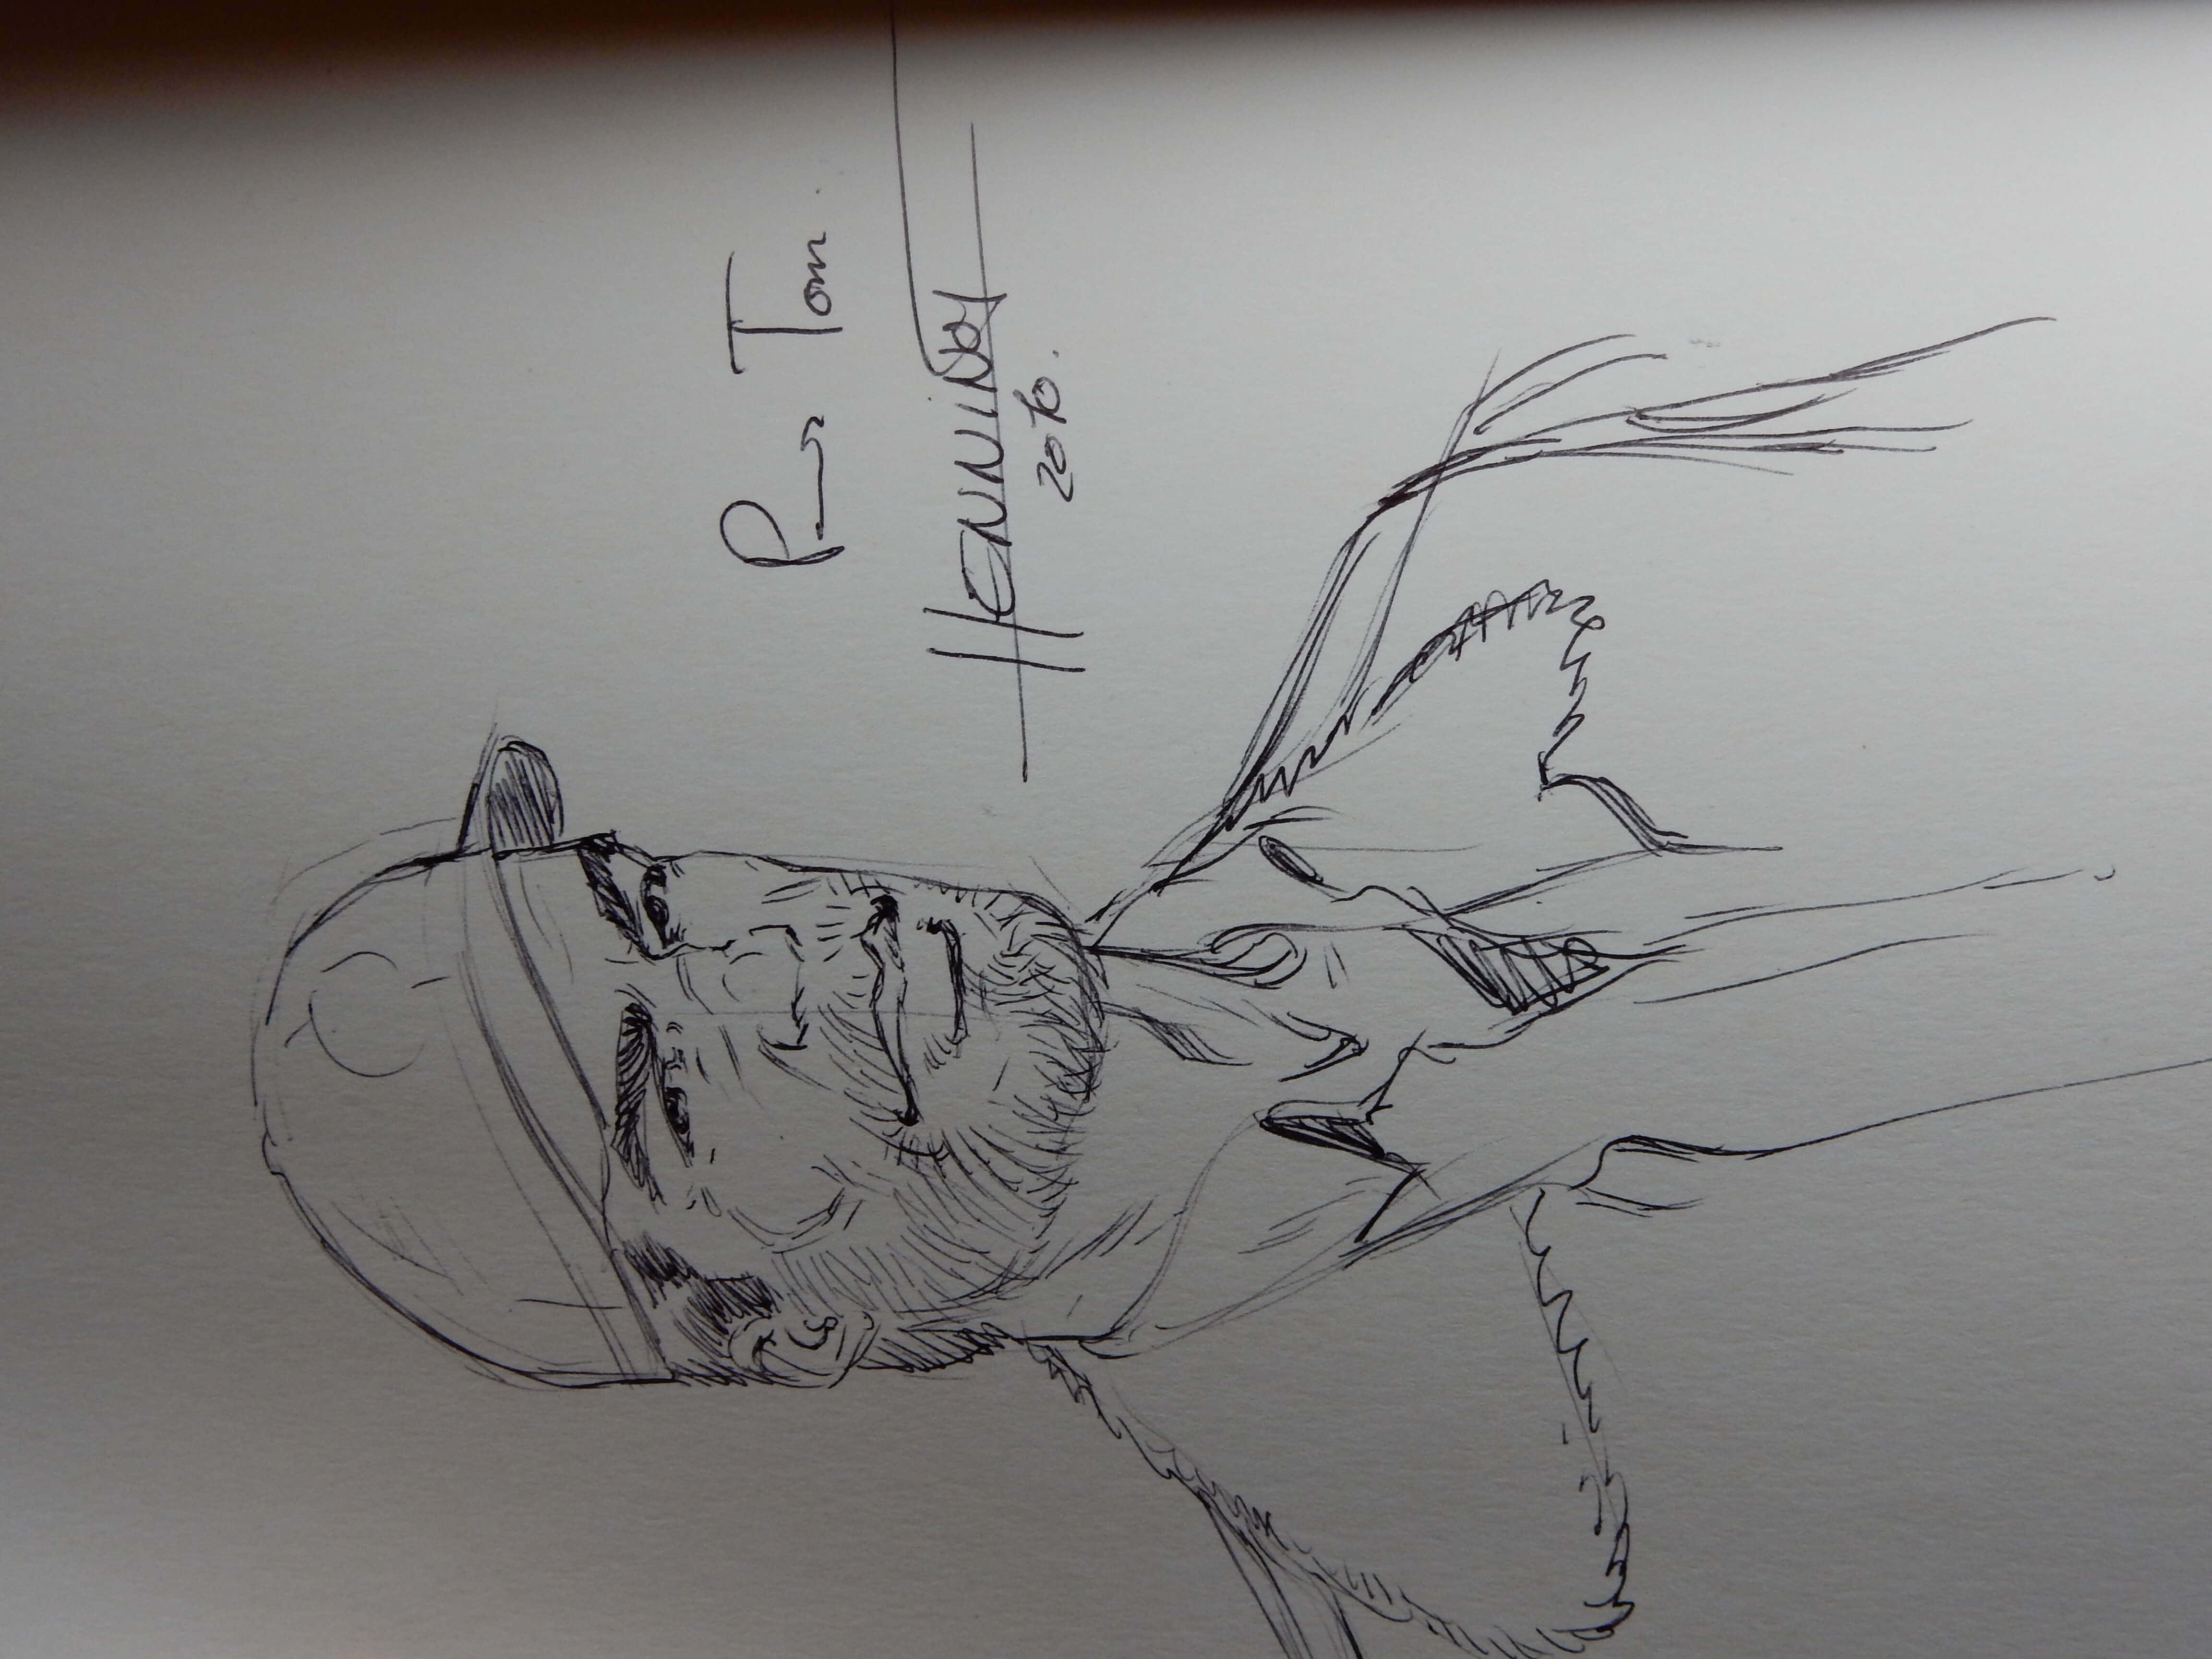 Pour Tom.
HENNINOT
2010.